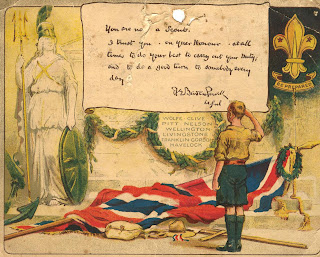 You are now a Scout.
I trust you - on your Honour - at all
times to do your best to carry out your Duty,
and to do a good turn to somebody every
day.
BE PREPARED
WOLFE CLIVE
PITT NELSON
WELLINGTON
LIVINGSTONE
FRANKLIN GORDON
HAVELOCK